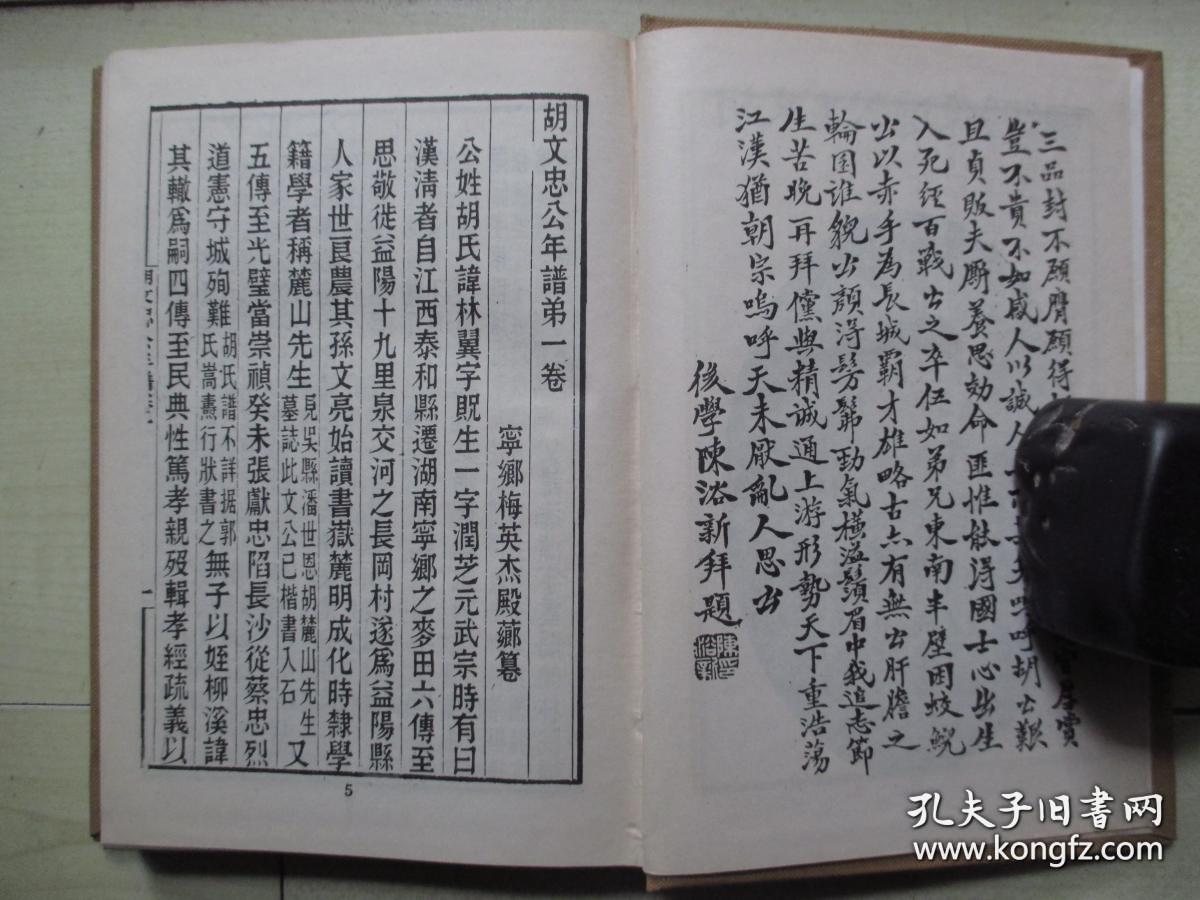 三品封不願膺願得
豈不貴不如感人以誠人
且貞販夫廝養思効命匪惟能得國士心出生
入死經百戰出之卒伍如弟兄東南半壁困蛟鯢
出以赤手為長城霸才雄略古亦有無出肝膽之
輪囷誰貌出顏得髣髴勁氣橫溢鬚眉中我追志節
生苦晚再拜儻與精誠通上游形勢天下重浩蕩
江漢猶朝宗嗚呼天未厭亂人思出
後學陳浴新拜題
胡文忠公年譜弟一卷
寧鄉梅英杰殿薌纂
公姓胡氏諱林翼字貺生一字潤芝元武宗時有曰
漢清者自江西泰和縣遷湖南寧鄉之麥田六傳至
思敬徙益陽十九里泉交河之長岡村遂爲益陽縣
人家世良農其孫文亮始讀書嶽麓明成化時隸學
籍學者稱麓山先生見吳縣潘世恩胡麓山先生墓誌此文公已楷書入石又
五傳至光璧當崇禎癸未張獻忠陷長沙從蔡忠烈
道憲守城殉難胡氏譜不詳据郭氏嵩燾行狀書之無子以姪柳溪諱
其轍爲嗣四傳至民典性篤孝親歿輯孝經疏義以
5
孔夫子旧书网
www.kongfz.com